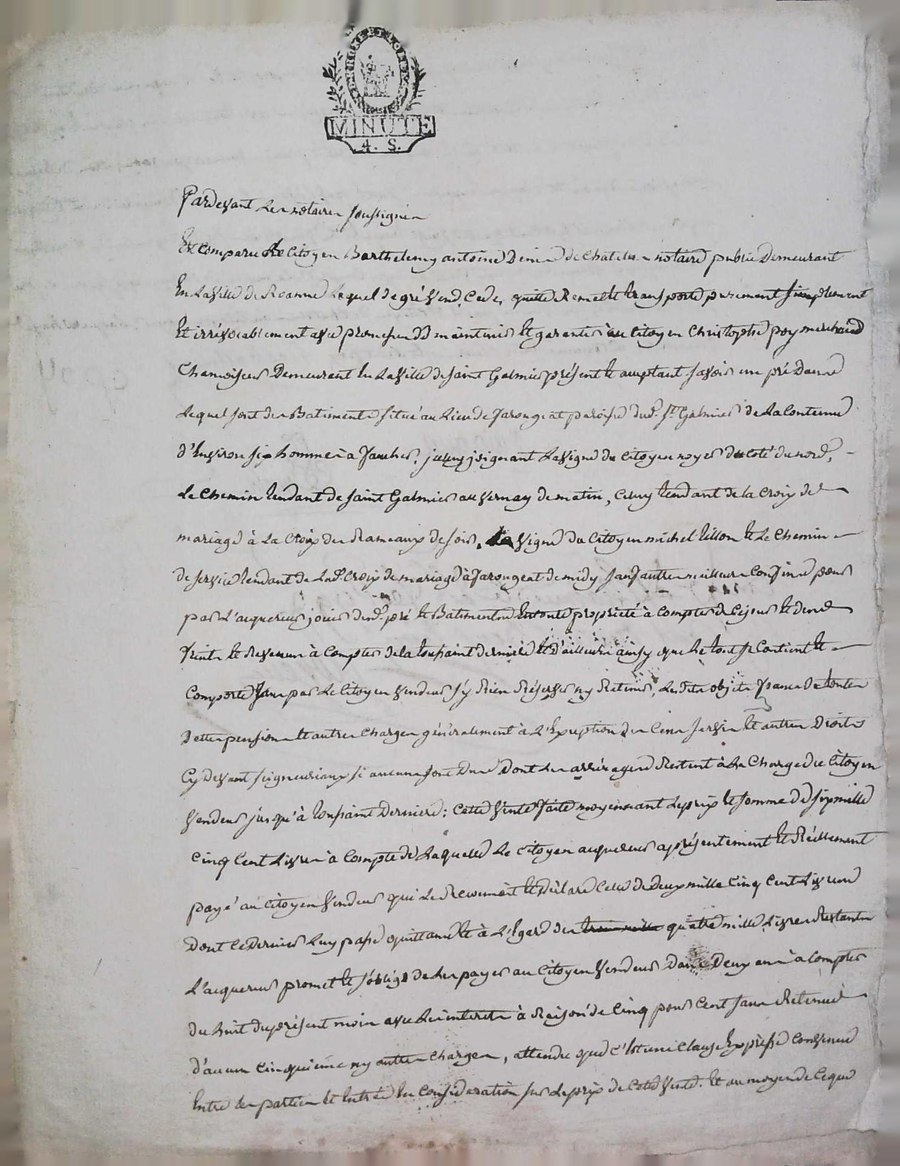 MINUTE
4. S.
Pardevant Le notaire soussigné
Est comparu Le Citoyen Barthelemy antoine Denis de Chatelus notaire public Demeurant
En La Ville de Roanne Lequel de gré Vend, Cede, quitte Remet et transporte purement simplement
Et irrévocablement avec promesse de maintenir Et garantir au Citoyen Christophe poy marchand
Chamoiseur Demeurant En La Ville de Saint Galmier présent et acceptant savoir un pré Dans
Lequel sont des Batiments situé au Lieu de Jarongeat paroisse dud. St. Galmier de La Contenue
d'Environ six hommes à faucher, joignant La Vigne du Citoyen noyer du coté du nord,
Le Chemin tendant de Saint Galmier au Vernay de matin, Celuy tendant de la Croix de
mariage à La Croix des Rameaux de soir, La Vigne du Citoyen michel Et Le Chemin
de service tendant de Lad. Croix de mariage à Jarongeat de midy sauf autres meilleurs Confins pour
par L'acquereur jouir dud. pré Et Batiments En toute propriété à Compter de Ce jour Et des
fruits Et Revenus à Compter de la toussaint derniere Et d'ailleurs ainsy que Le tout se Contient Et
Comporte sans par Le Citoyen Vendeur s'y Rien Réserver ny Retenir, Lesdits objets francs de toutes
Dettes pensions Et autres Charges généralement à L'Exception des Cens servis Et autres Droits
Cy devant seigneuriaux si aucuns sont dus Dont Les arrérages Restent à La Charge du Citoyen
Vendeur jusqu'à toussaint Derniere: Cette Vente faite moyennant Le prix Et somme de six mille
Cinq Cent Livres à Compte de Laquelle Le Citoyen acquereur a présentement Et Réellement
payé au Citoyen Vendeur qui Le Reconnait Et Déclare Celle de Deux mille Cinq Cent Livres
Dont Ce Dernier Luy passe quittance Et à L'Egard des trois mille quatre mille Livres Restantes
L'acquereur promet Et s'oblige de Les payer au Citoyen Vendeur Dans Deux ans à Compter
du huit du présent mois avec Les interets à Raison de Cinq pour Cent sans Retenue
d'aucun Cinquieme ny autres Charges, attendu que C'Est une Clause Expresse Convenue
Entre Les parties Et Entrée En Consideration sur Le prix de Cette Vente. Et au moyen de Ce que